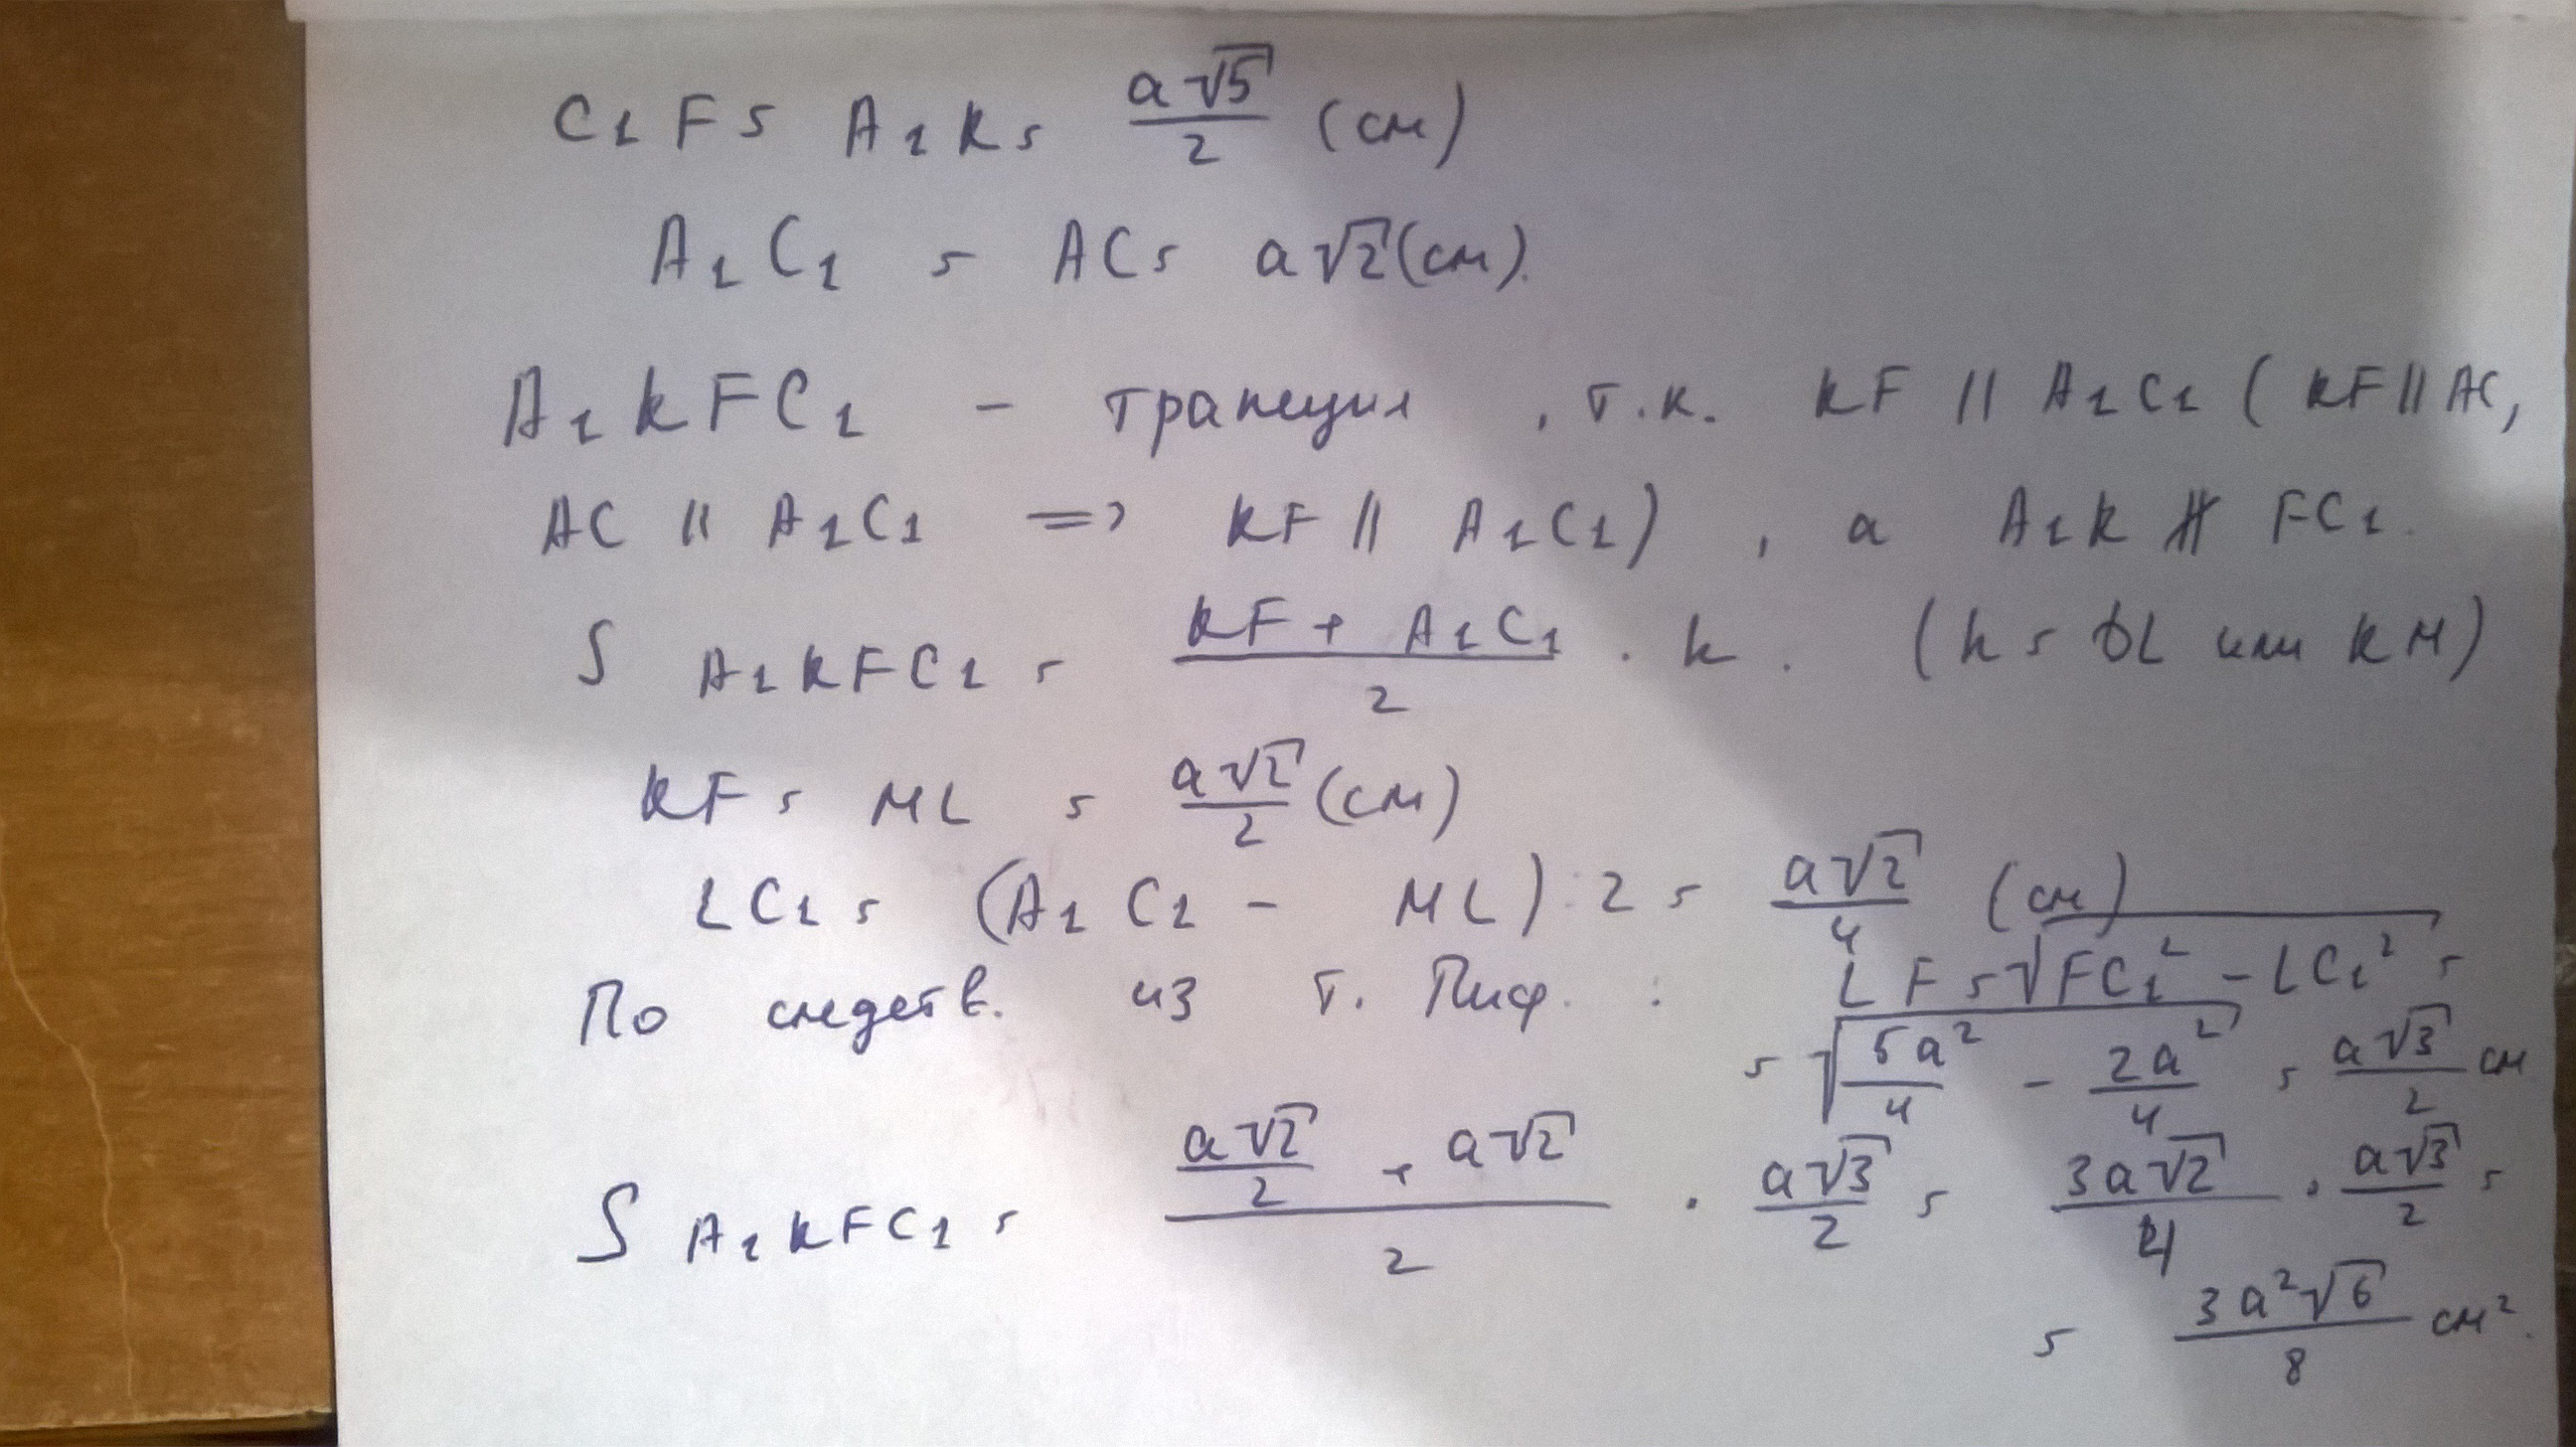 C₁F = A₁K = a√5/2 (см)
A₁C₁ = AC = a√2 (см).
A₁KFC₁ – трапеция, т.к. KF || A₁C₁ (KF || AC,
AC || A₁C₁ => KF || A₁C₁), а A₁K ∦ FC₁.
S A₁KFC₁ = (KF + A₁C₁)/2 · h. (h = FL или KM)
KF = ML = a√2/2 (см)
LC₁ = (A₁C₁ – ML) : 2 = a√2/4 (см)
По следств. из т. Пиф. : LF = √(FC₁² – LC₁²) =
= √(5a²/4 – 2a²/4) = a√3/2 см
S A₁KFC₁ = (a√2/2 + a√2)/2 · a√3/2 = 3a√2/4 · a√3/2 =
= 3a²√6/8 см².